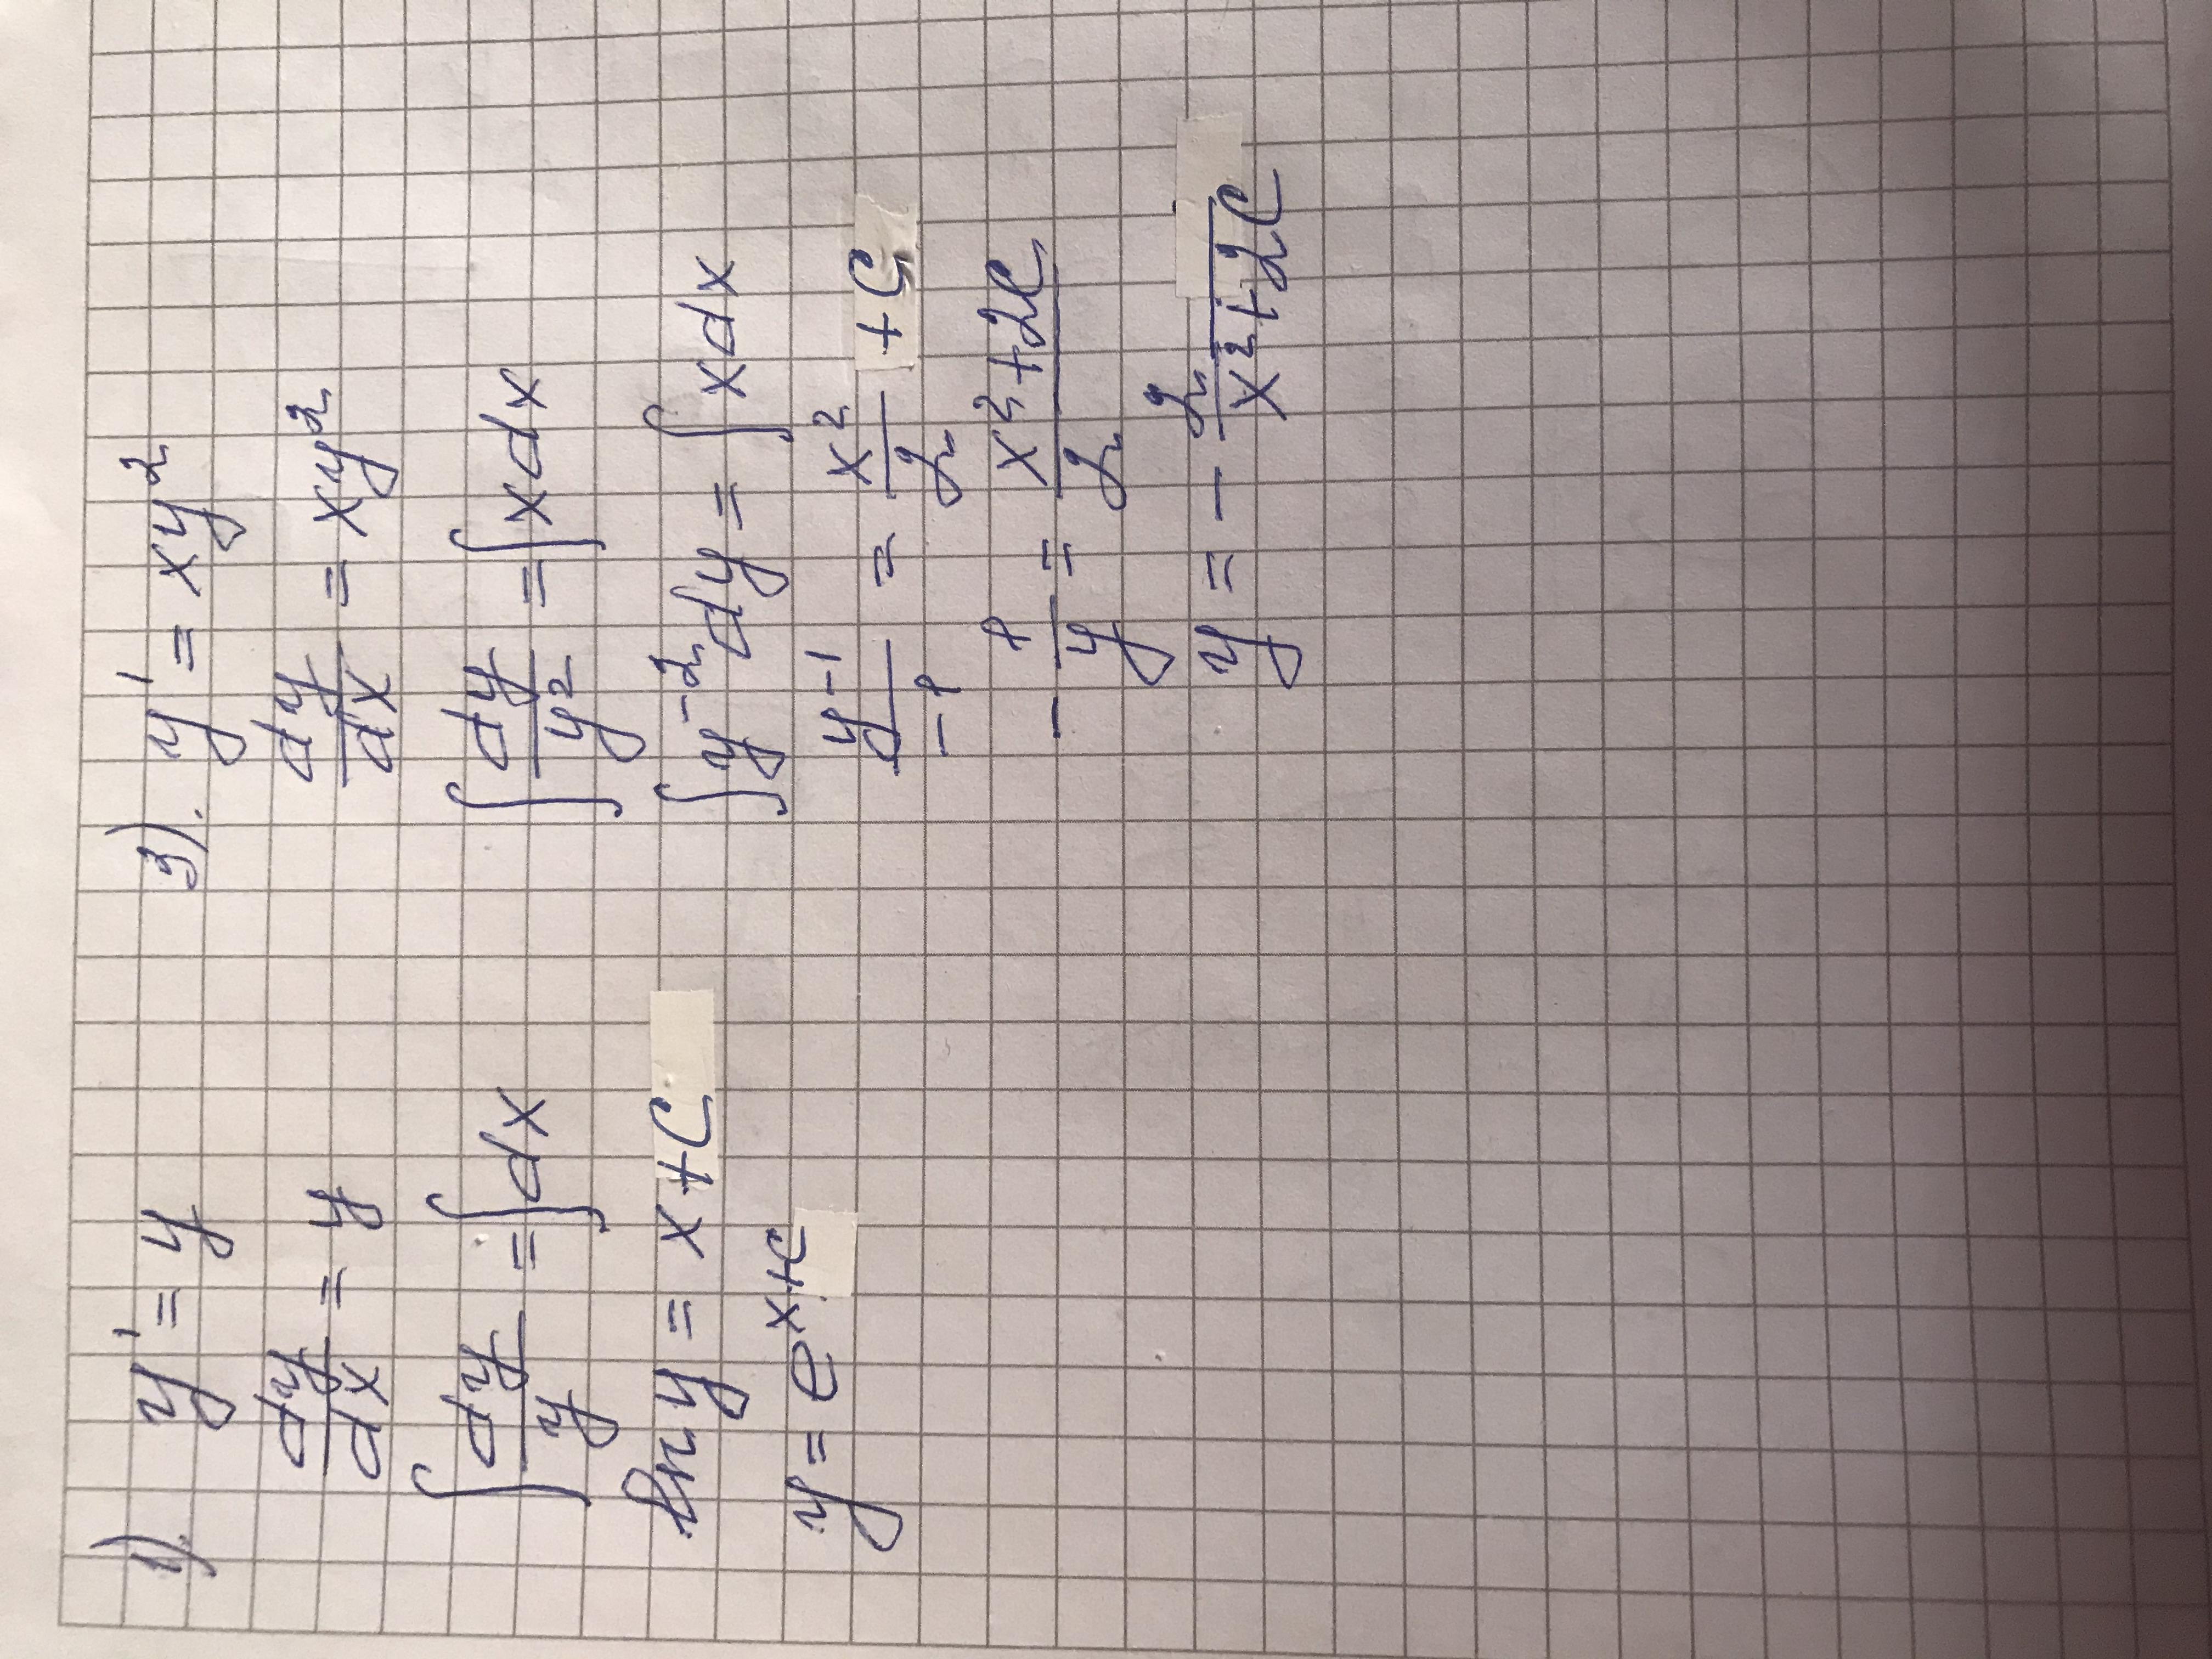 1). y' = y
dy/dx = y
∫ dy/y = ∫ dx
ln y = x + C
y = e^(x+c)
3). y' = xy²
dy/dx = xy²
∫ dy/y² = ∫ x dx
∫ y⁻² dy = ∫ x dx
y⁻¹/-1 = x²/2 + C
- 1/y = (x² + 2C)/2
y = - 2/(x² + 2C)